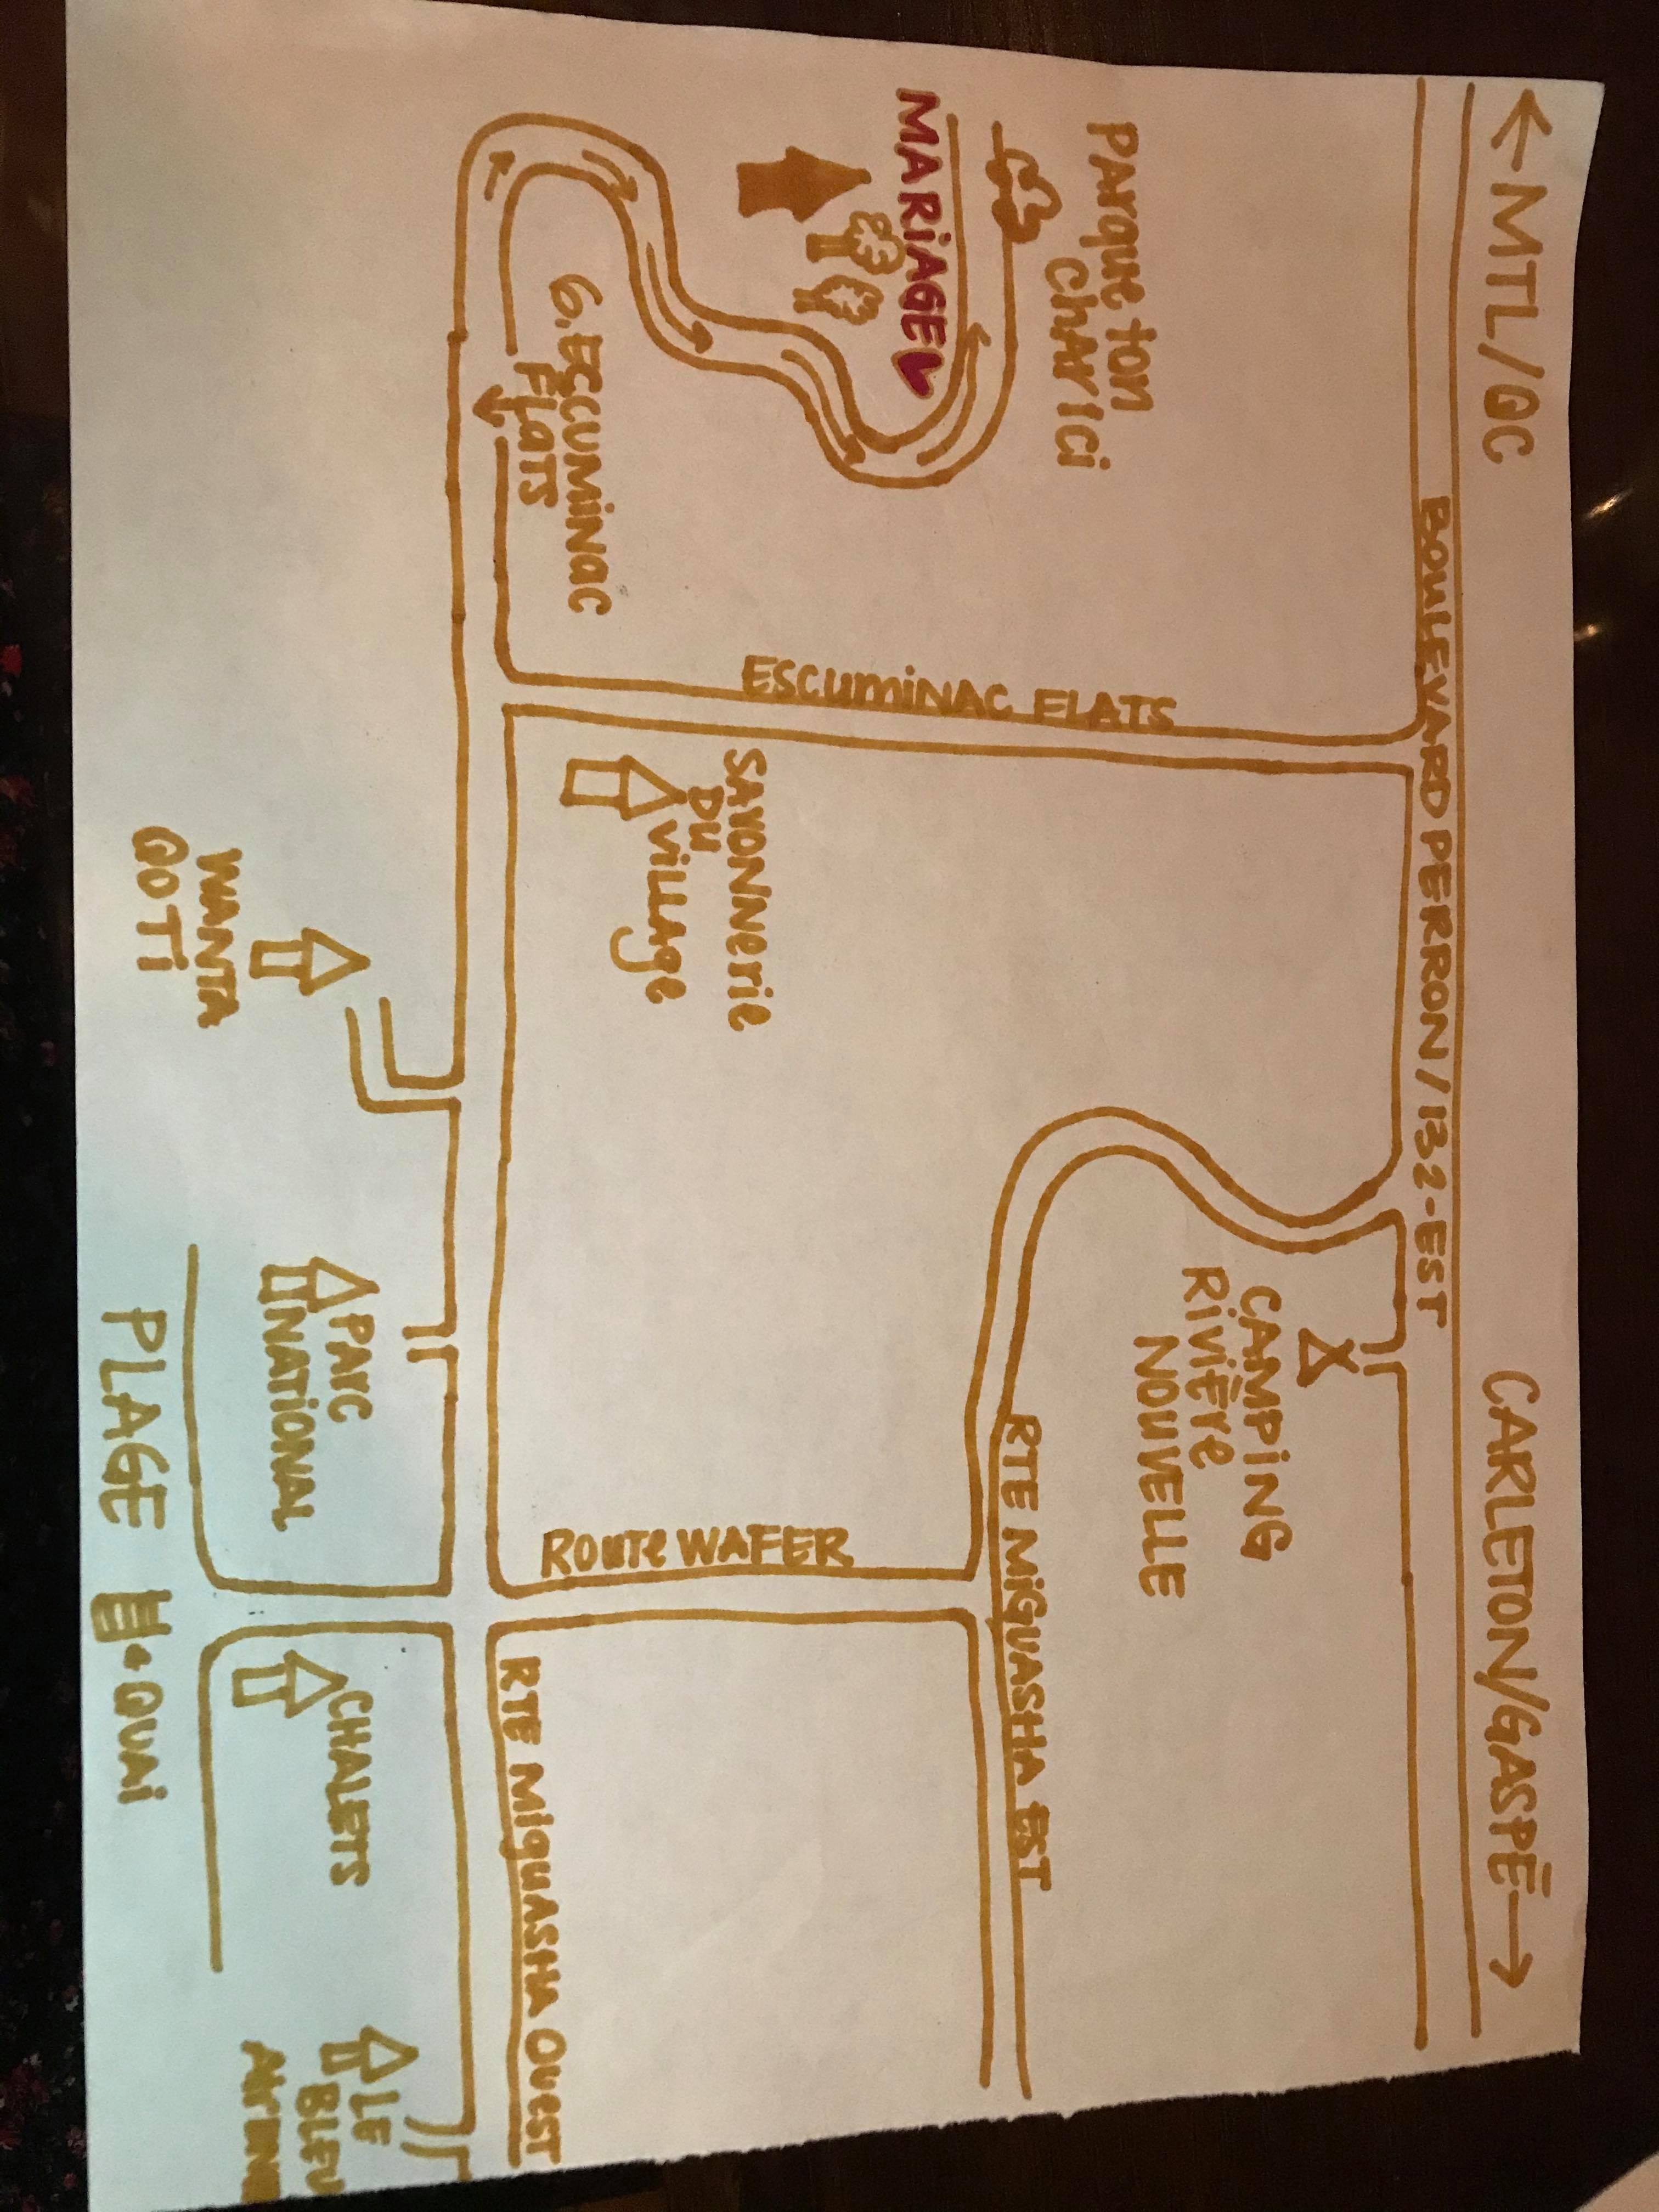 ←MTL/QC
CARLETON/GASPÉ→
BOULEVARD PERRON/132-EST
CAMPING
RiVIÈre
NOUVELLE
PArque ton
chAr ici
ESCUMiNAC FLATS
RTE MiGUASHA EST
MARiAGE
SAVONNerie
DU
ViLLAge
Route WAFER
6. ESCUMiNac
FLaTS
RTE MiguASHA OuesT
WANTA
QOTi
PArC
NATiONAL
CHALETS
LE
BLEU
PLAGE
QUAi